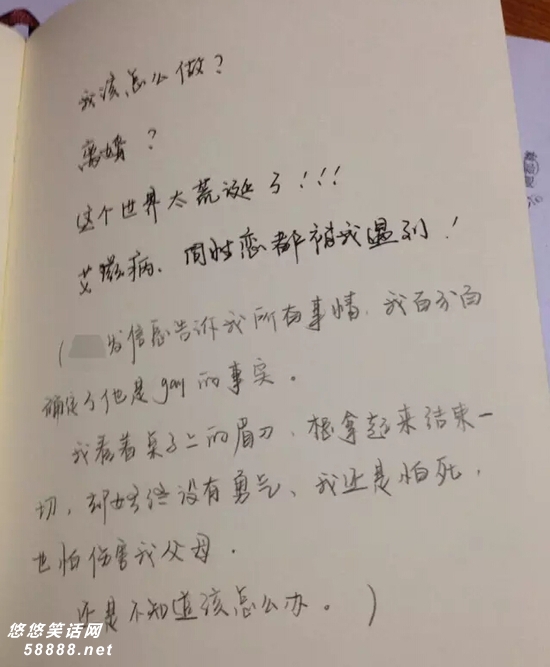 我该怎么做？
离婚？
这个世界太荒诞了！！！
艾滋病、同性恋都被我遇到！
（ 发信息告诉我所有事情，我百分百
确定了他是gay的事实。
我看着桌子上的眉刀，想拿起来结束一
切，却始终没有勇气、我还是怕死，
也怕伤害我父母．
还是不知道该怎么办。）
悠悠笑话网
58888.net